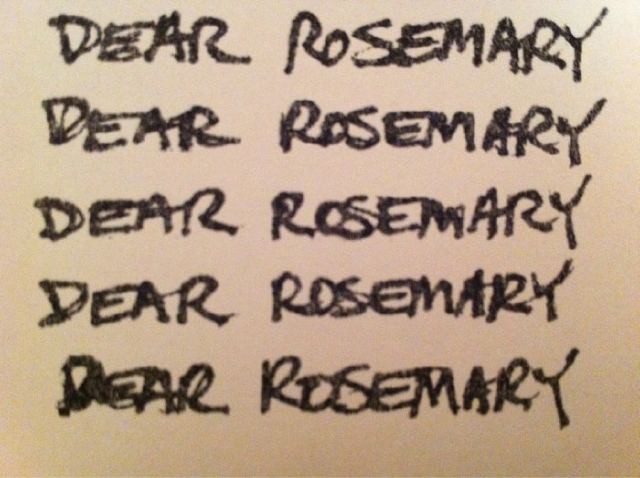 DEAR ROSEMARY
DEAR ROSEMARY
DEAR ROSEMARY
DEAR ROSEMARY
DEAR ROSEMARY